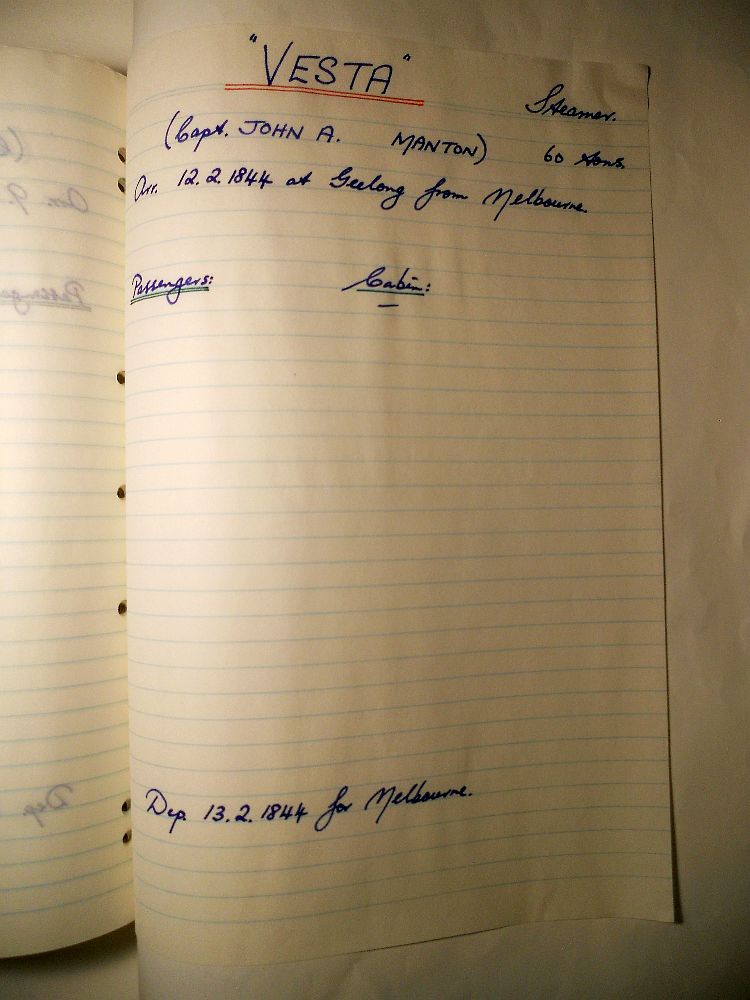 "VESTA"
Steamer.
(Capt. JOHN A. MANTON) 60 tons.
Arr. 12.2.1844 at Geelong from Melbourne.
Passengers: Cabin:
—
Dep. 13.2.1844 for Melbourne.